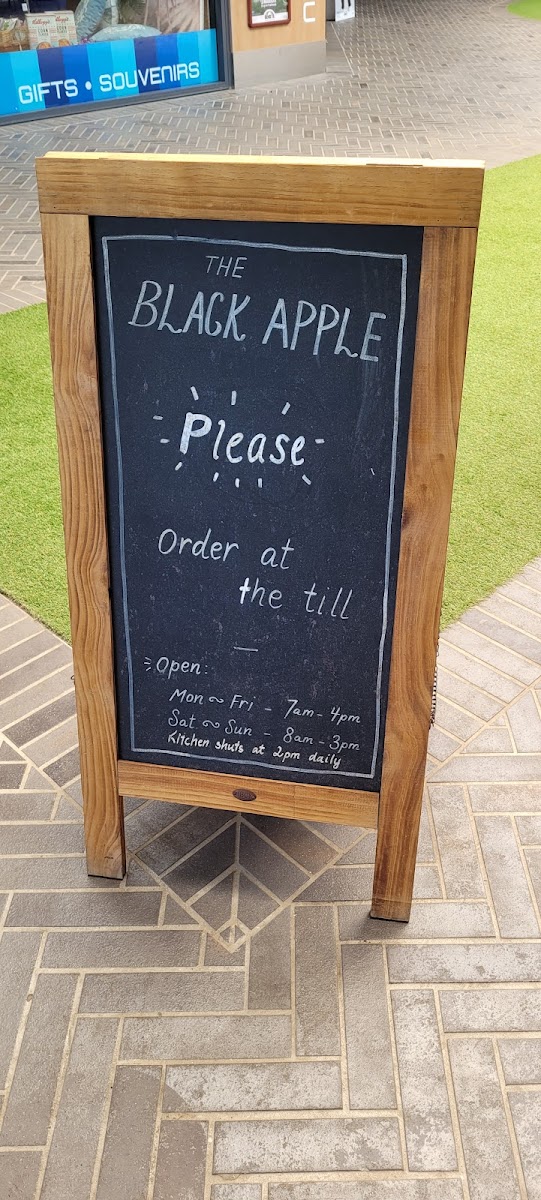 GIFTS • SOUVENIRS
THE
BLACK APPLE
Please
Order at
the till
Open:
Mon ~ Fri - 7am - 4pm
Sat ~ Sun - 8am - 3pm
Kitchen shuts at 2pm daily